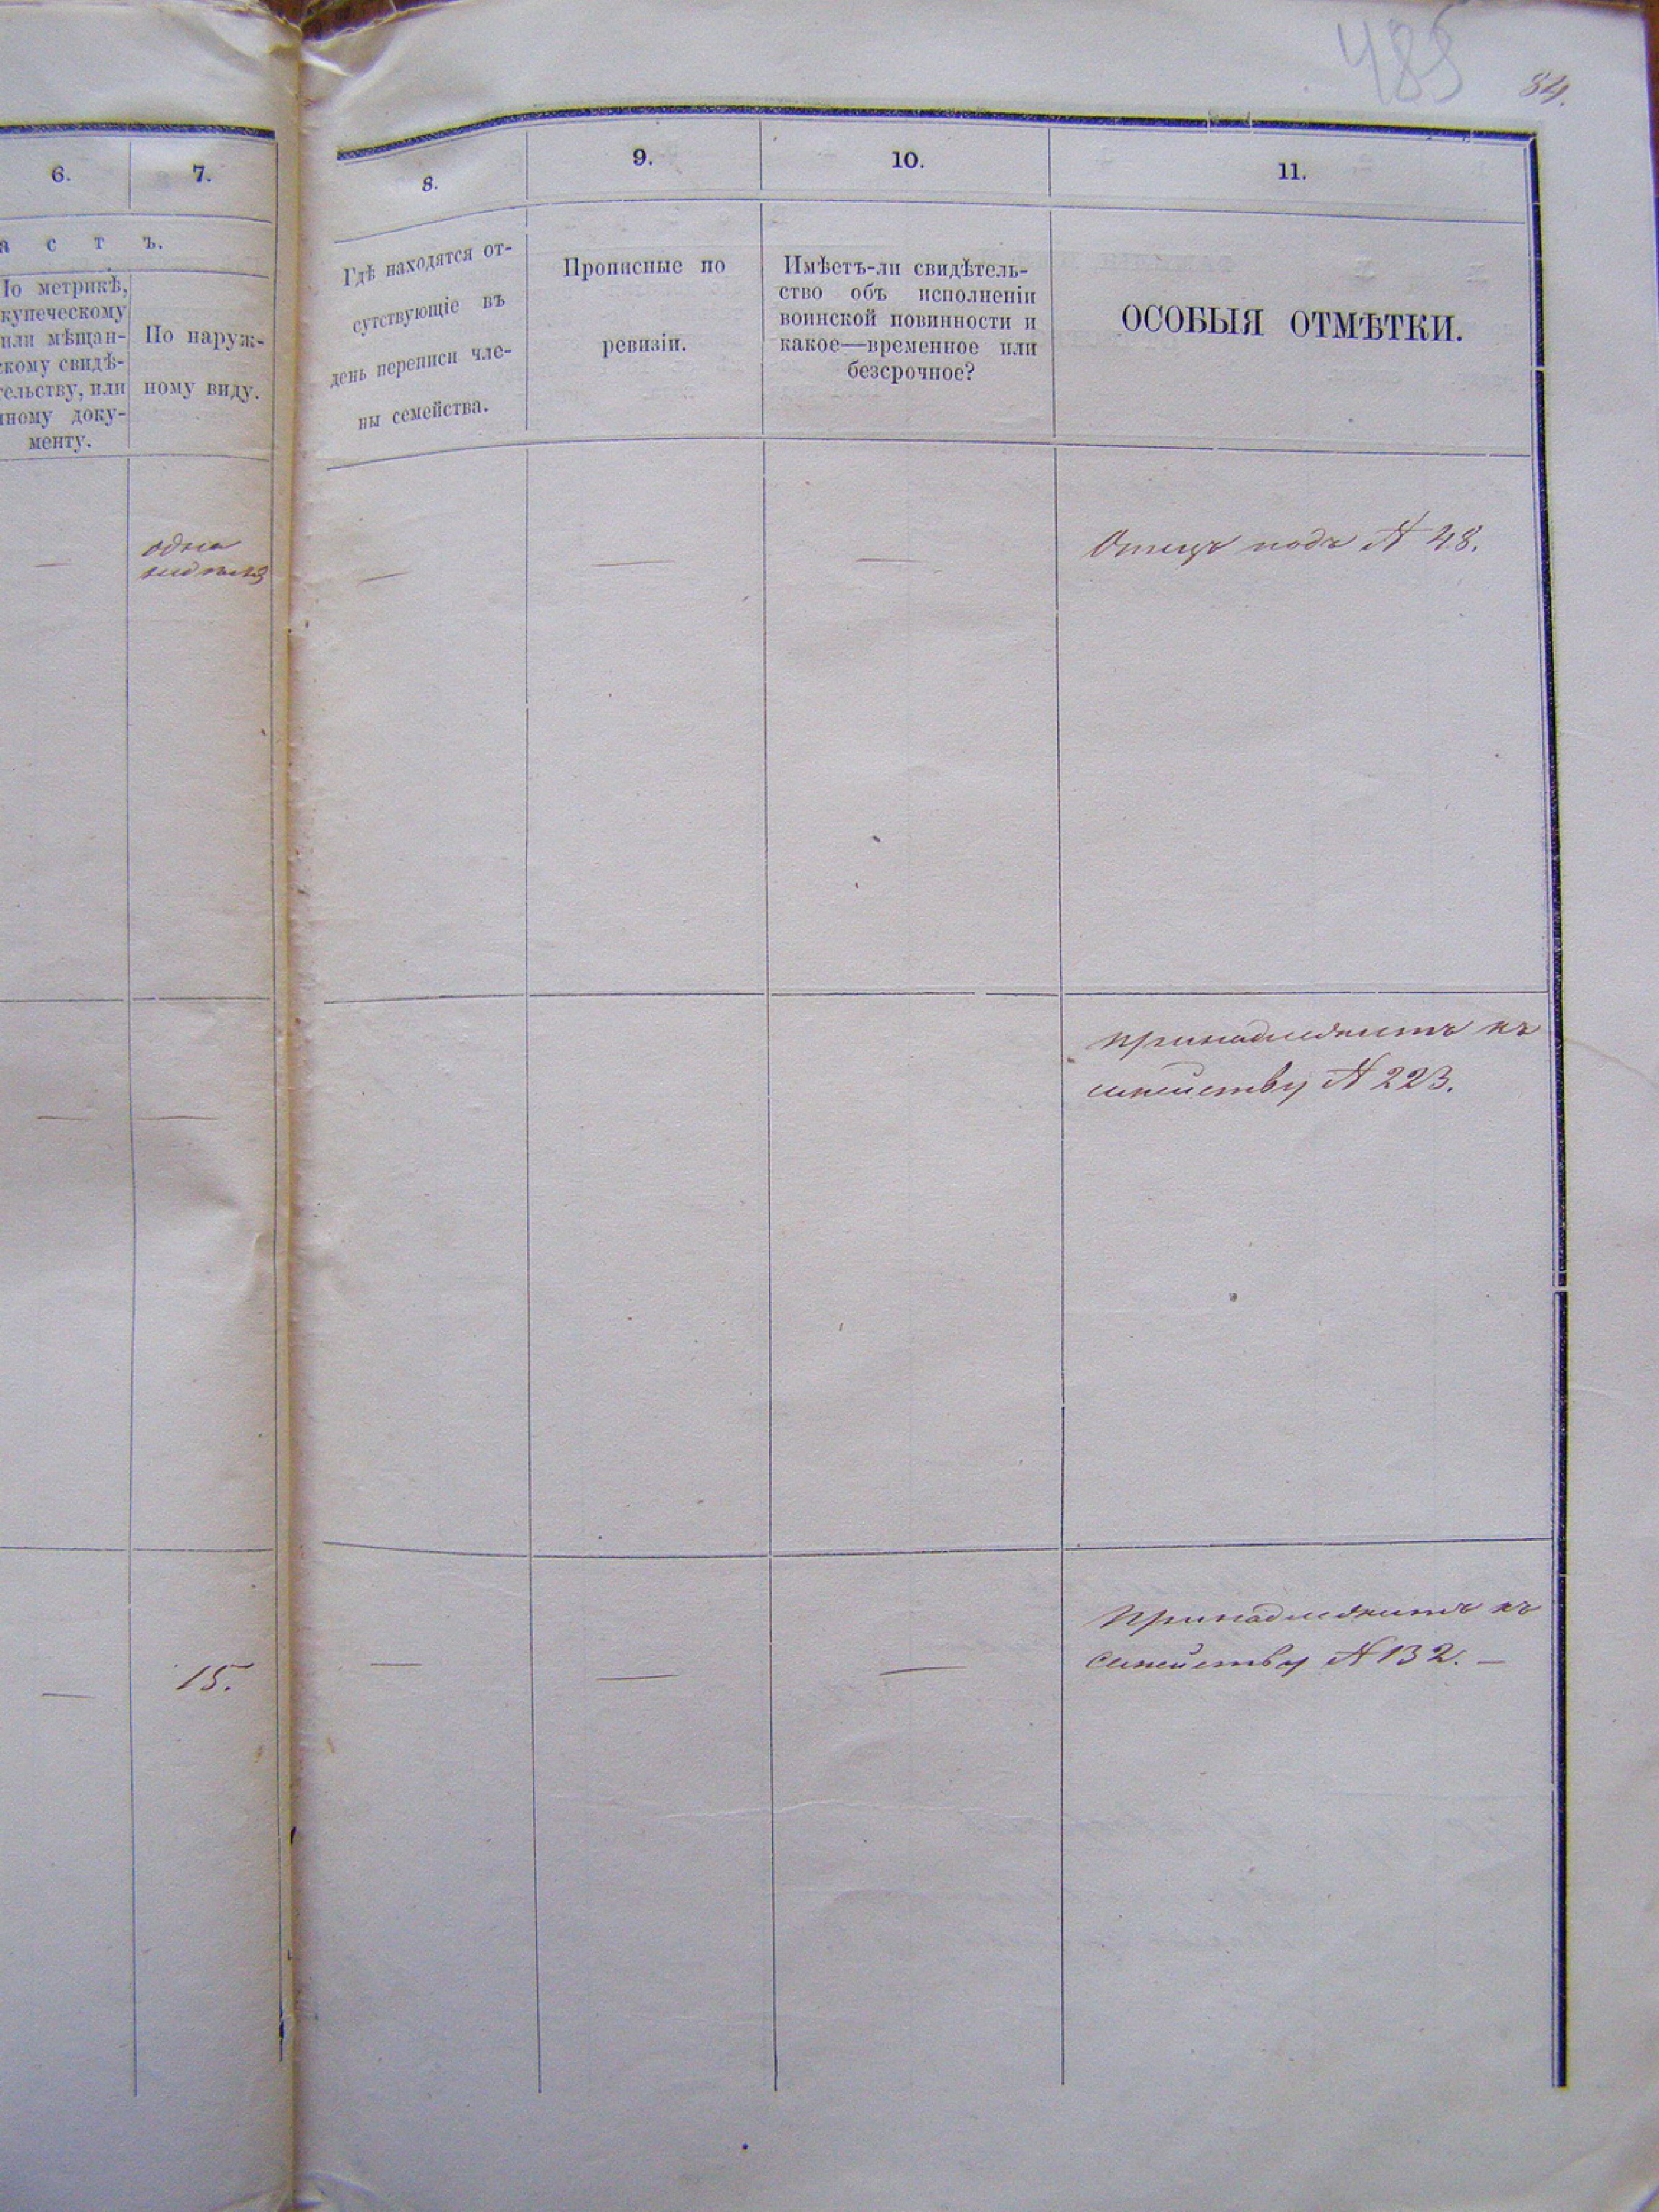 485
84.
6.
7.
8.
9.
10.
11.
а с т ъ.
По метрикѣ,
купеческому
или мѣщан-
скому свидѣ-
тельству, или
иному доку-
менту.
По наруж-
ному виду.
Гдѣ находятся от-
сутствующіе въ
день переписи чле-
ны семейства.
Прописные по
ревизіи.
Имѣетъ-ли свидѣтель-
ство объ исполненіи
воинской повинности и
какое—временное или
безсрочное?
ОСОБЫЯ ОТМѢТКИ.
—
одна
недѣля
—
—
—
Отецъ подъ № 48.
—
—
принадлежитъ къ
семейству № 223.
—
15.
—
—
—
Принадлежитъ къ
семейству № 132. —